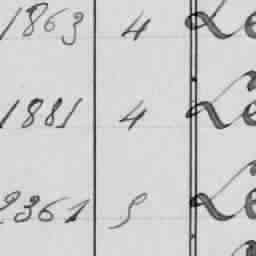 1863 4 Le
1881 4 Le
2361 5 Le